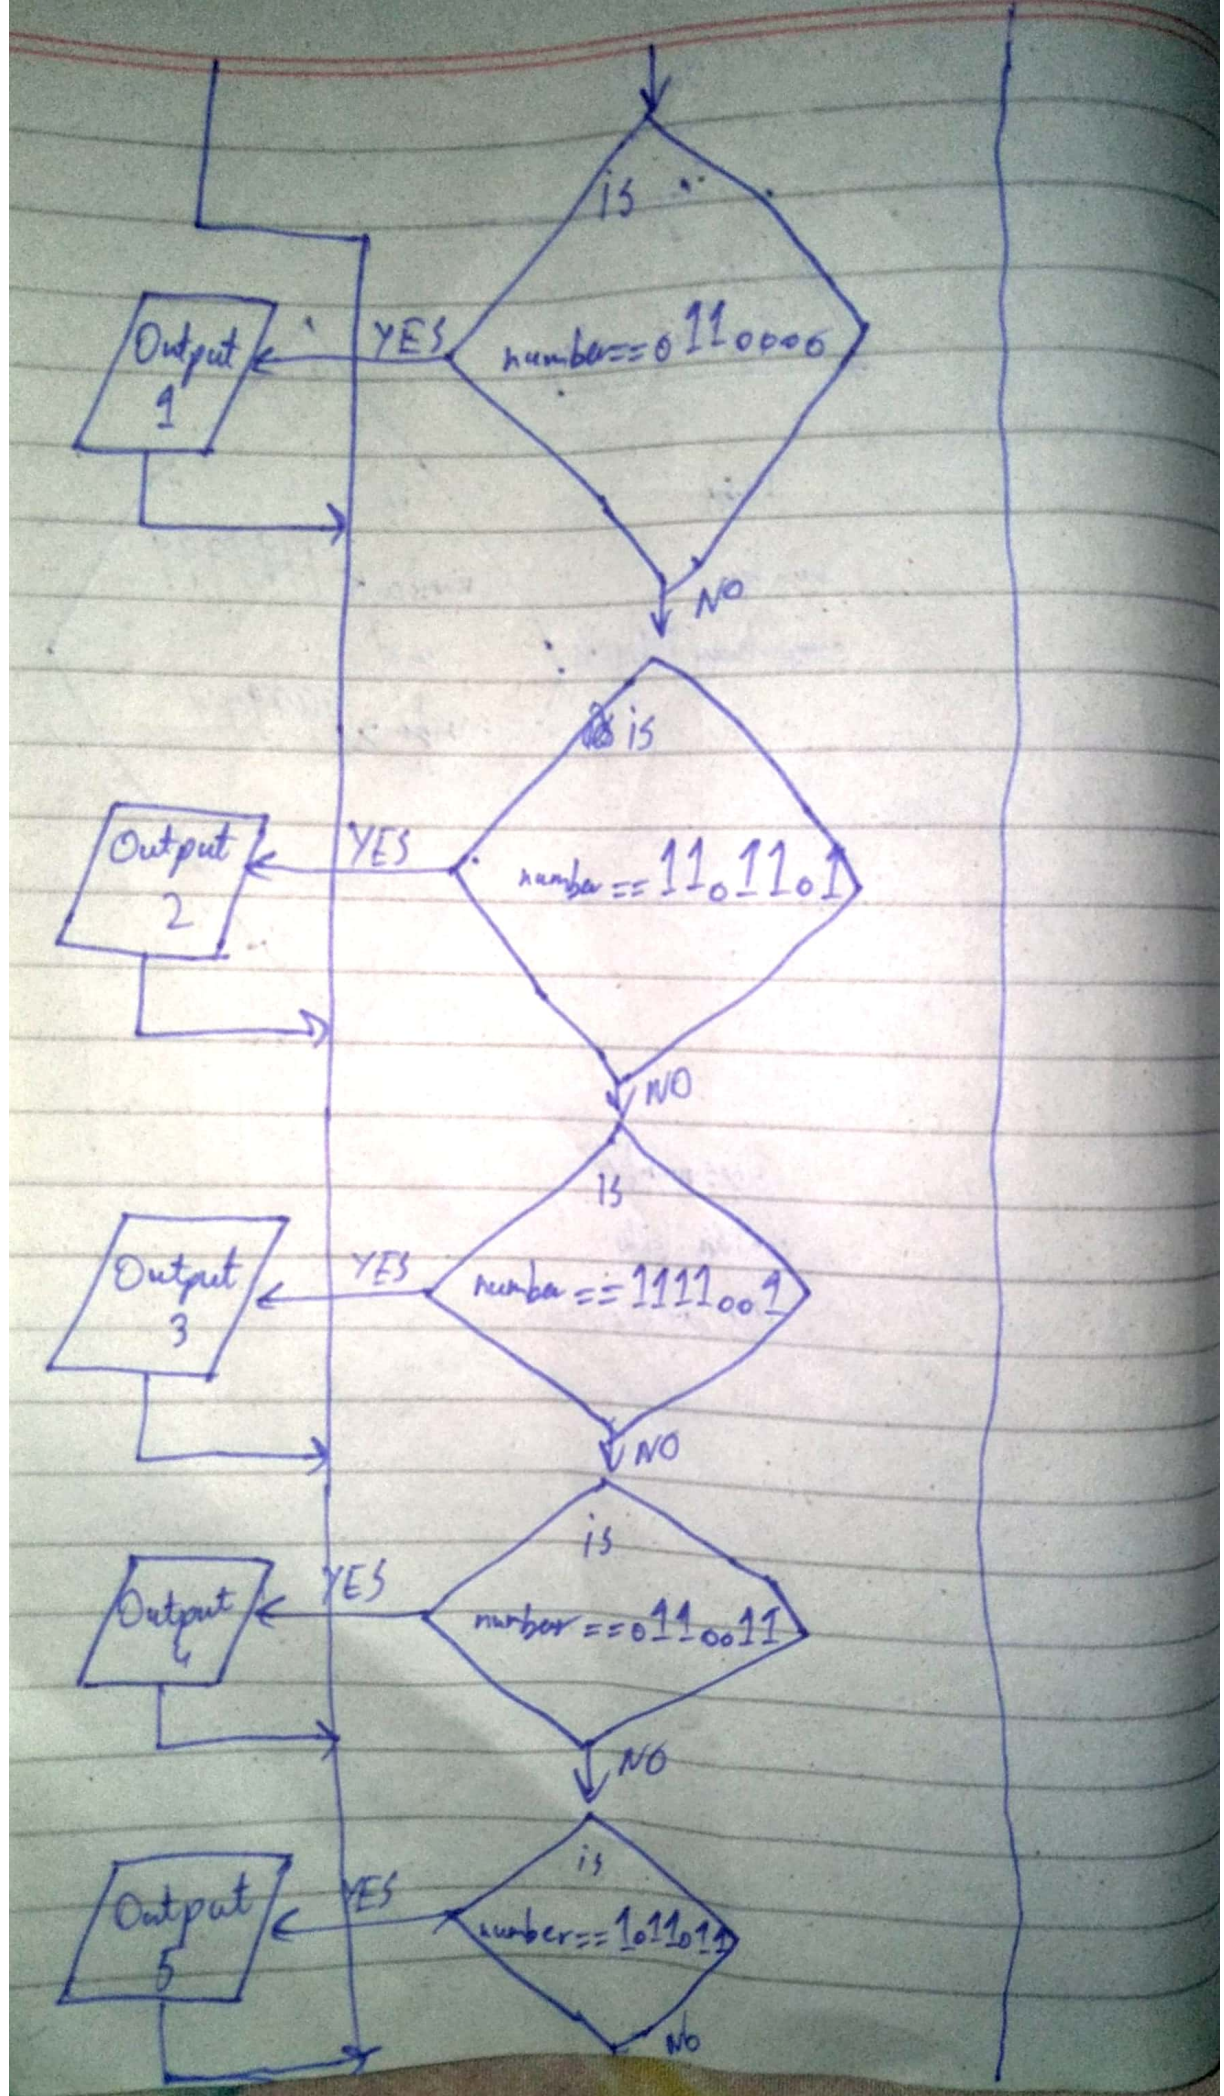 is
number==0110000
YES
Output
1
NO
is
number==1101101
YES
Output
2
NO
is
number==1111001
YES
Output
3
NO
is
number==0110011
YES
Output
4
NO
is
number==1011011
YES
Output
5
No